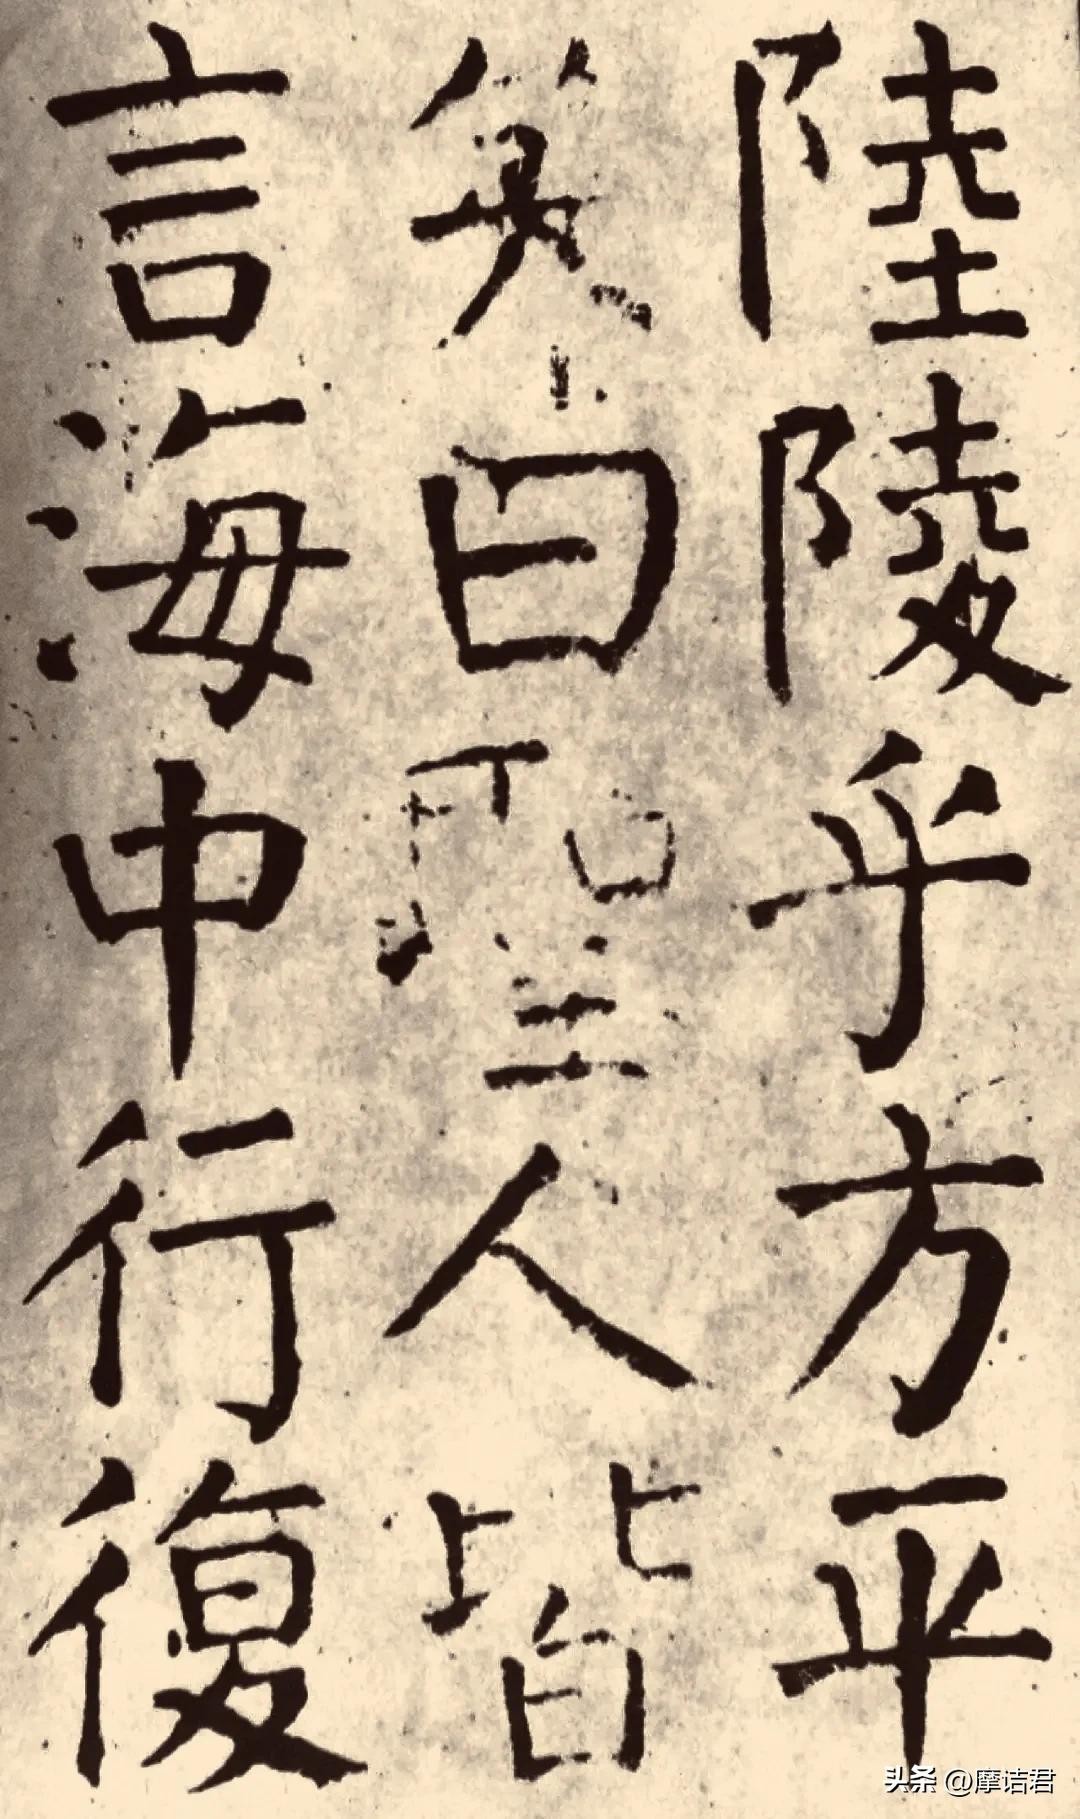 陸陵乎方平
笑曰聖人皆
言海中行復
头条 @摩诘君